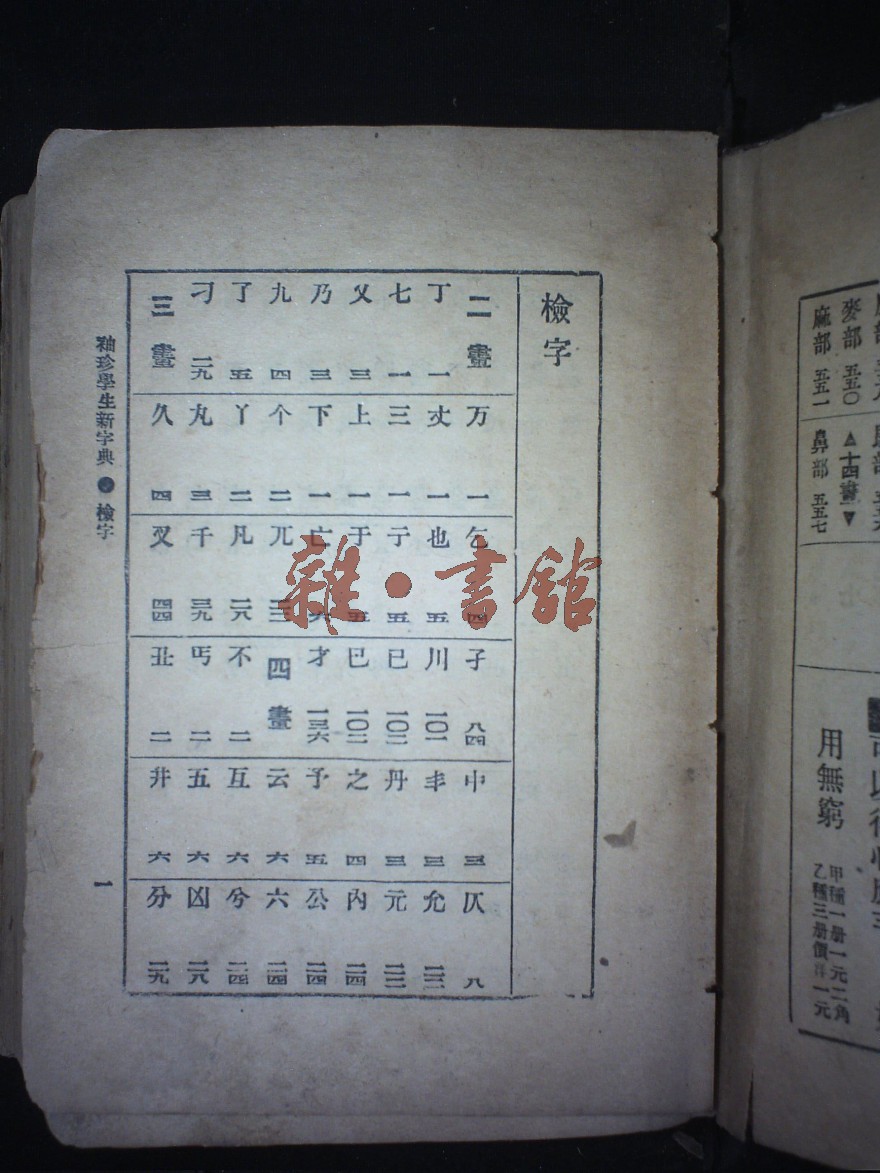 檢字
二畫 丁一 七一 乂三 乃三 九四 了五 刁一九 三畫
万一 丈一 三一 上一 下一 个二 丫二 丸三 久四
乞四 也五 亍五 于五 亡六 兀一三 凡一八 千三九 叉四四
子八四 川一〇一 已一〇二 巳一〇二 才一三六 四畫 不二 丐二 丑二
中三 丰三 丹三 之四 予五 云六 互六 五六 井六
仄八 允一三 元一三 內一四 公一四 六一四 兮一四 凶一八 分一九
袖珍學生新字典 檢字
一
雜·書館
麥部 五五〇
麻部 五五一
▲十四畫▼
鼻部 五五七
用無窮
甲種一册一元二角
乙種三册價洋一元